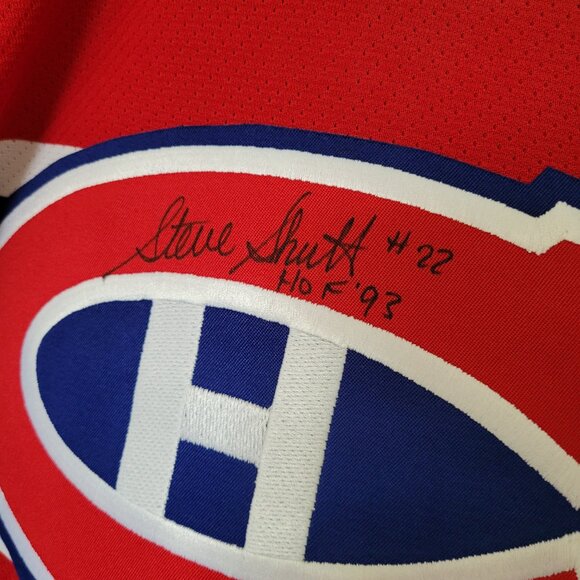 Steve Shutt #22
HOF '93
H